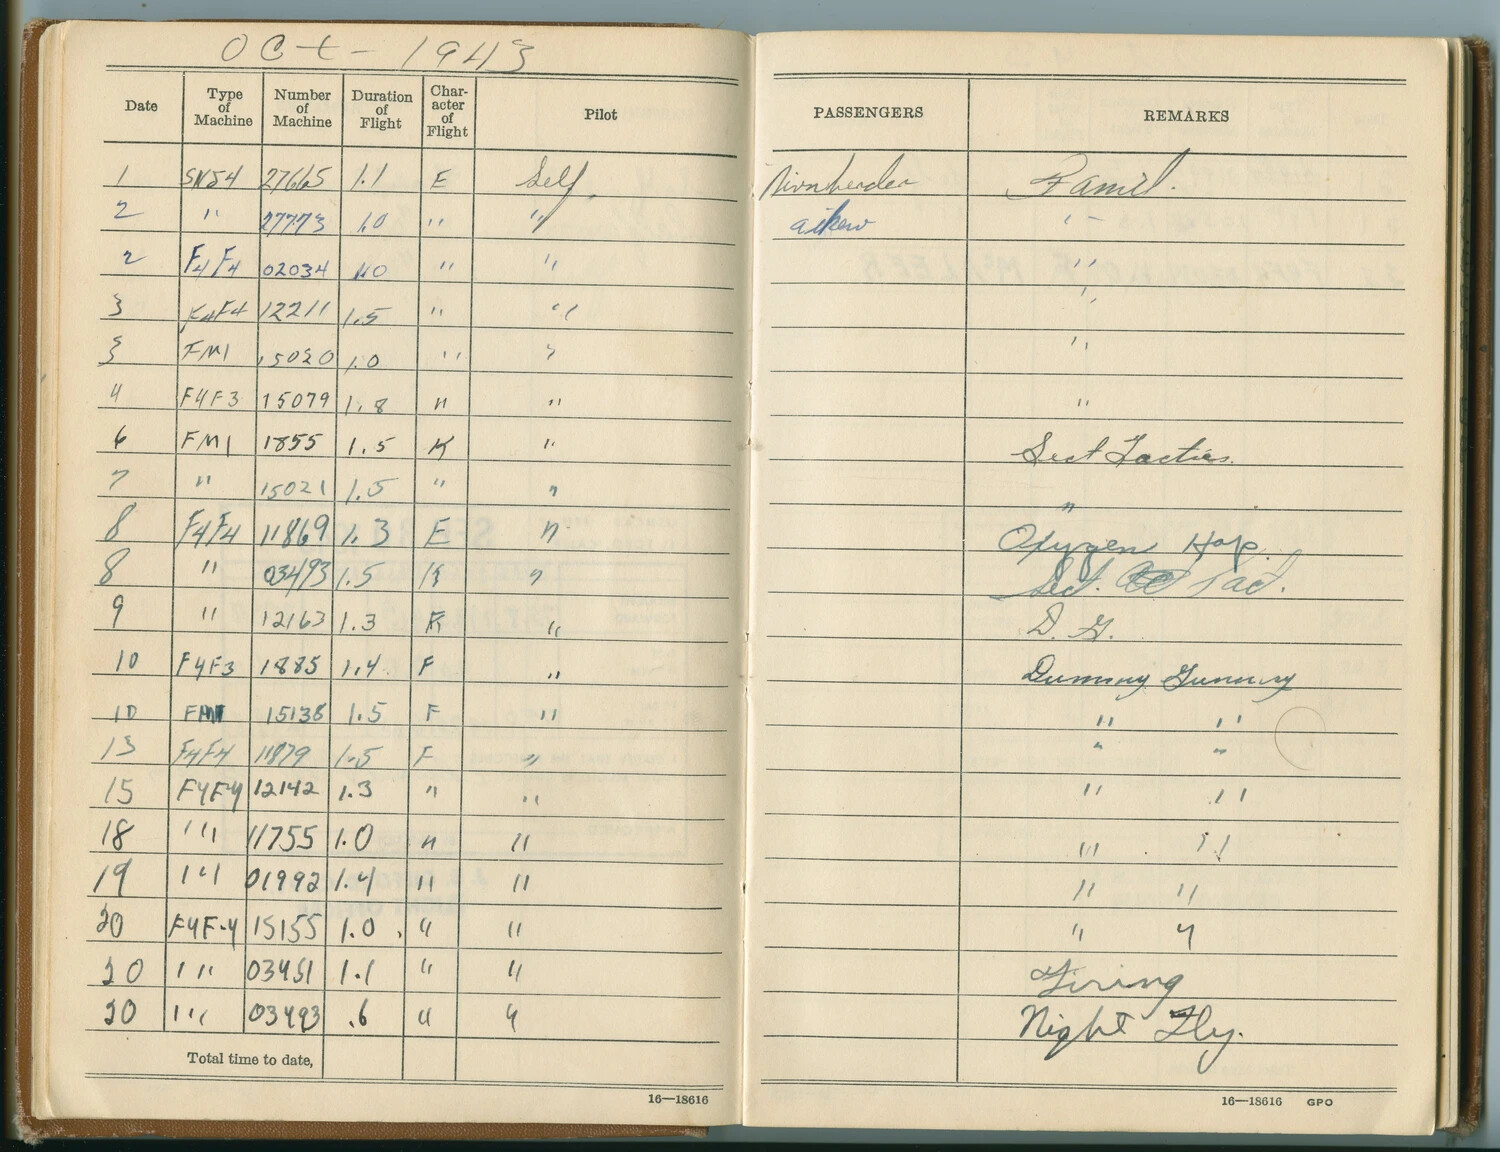 Oct - 1943
Date Type of Machine Number of Machine Duration of Flight Character of Flight Pilot PASSENGERS REMARKS
1 SNJ4 27665 1.1 E Self Famil.
2 " 27773 1.0 " " Aiken "
2 F4F4 02034 1.0 " " "
3 F4F4 12211 1.5 " " "
3 FM1 15020 1.0 " " "
4 F4F3 15079 1.8 " " "
6 FM1 1855 1.5 K " Sect Tactics.
7 " 15021 1.5 " " "
8 F4F4 11869 1.3 E " Oxygen Hop.
8 " 03493 1.5 K " Sect. Tact.
9 " 12163 1.3 K " D. G.
10 F4F3 1885 1.4 F " Dummy Gunnery
10 FM1 15138 1.5 F " " "
13 F4F4 11879 1.5 F " " "
15 F4F-4 12142 1.3 " " " "
18 " 11755 1.0 " " " "
19 " 01992 1.4 " " " "
20 F4F-4 15155 1.0 " " " "
20 " 03451 1.1 " " Firing
20 " 03493 .6 " " Night Fly.
Total time to date,
16—18616 16—18616 GPO